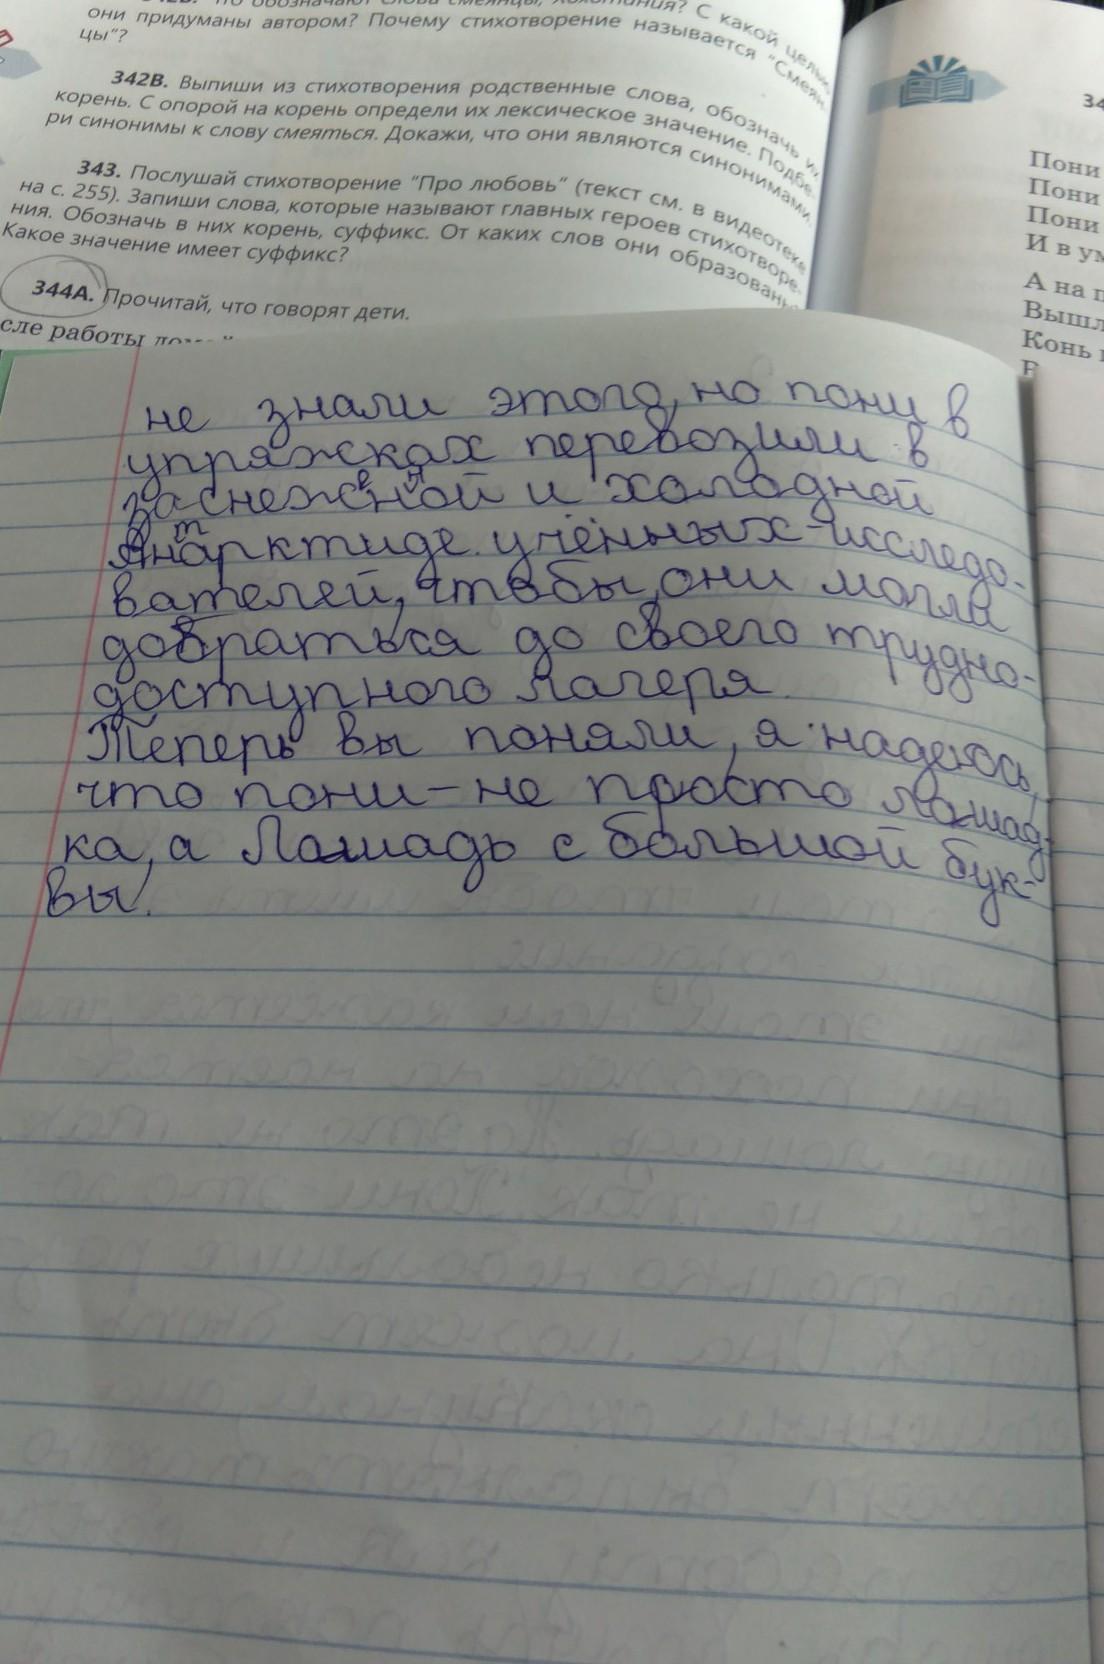 они придуманы автором? Почему стихотворение называется "Смеян-
цы"?
342В. Выпиши из стихотворения родственные слова, обозначь их
корень. С опорой на корень определи их лексическое значение. Подбе-
ри синонимы к слову смеяться. Докажи, что они являются синонимами.
343. Послушай стихотворение "Про любовь" (текст см. в видеотеке
на с. 255). Запиши слова, которые называют главных героев стихотворе-
ния. Обозначь в них корень, суффикс. От каких слов они образованы?
Какое значение имеет суффикс?
344А. Прочитай, что говорят дети.
сле работы
34
Пони
Пони
Пони
И в ум
А на п
Вышл
Конь
не знали этого, но пони в
упряжках перевозили в
заснеженной и холодной
Антарктиде учённых-исследо-
вателей, чтобы они могла
добраться до своего трудно-
доступного лагеря.
Теперь вы поняли, я надеюсь,
что пони - не просто лошад-
ка, а Лошадь с большой бук-
вы.